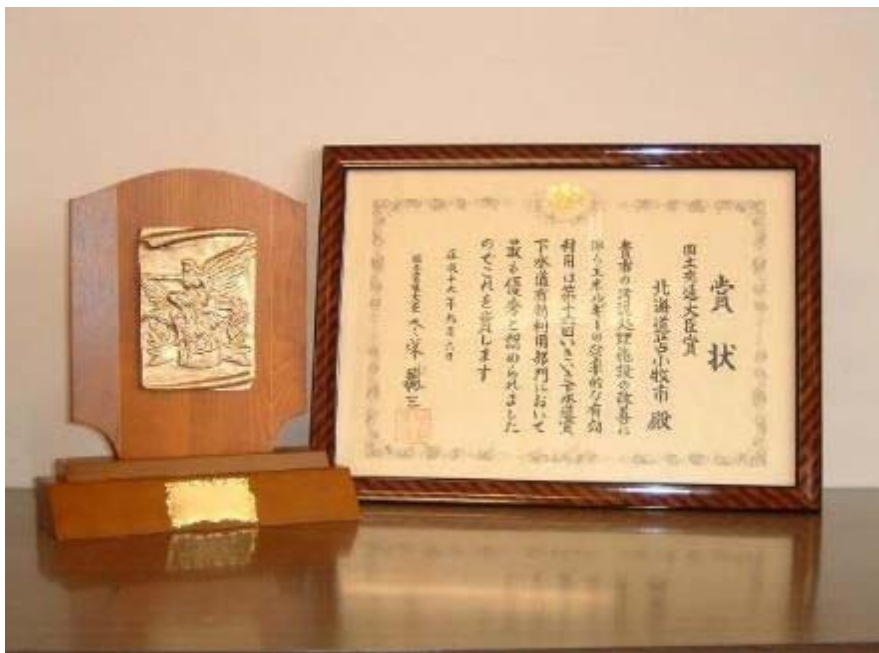 賞状
国土交通大臣賞
北海道苫小牧市 殿
貴市の汚泥処理施設の改善に
係るエネルギーの効率的な有効
利用は第十三回いきいき下水道賞
下水道有効利用部門において
最も優秀と認められました
のでこれを賞します
平成十六年九月六日
国土交通大臣